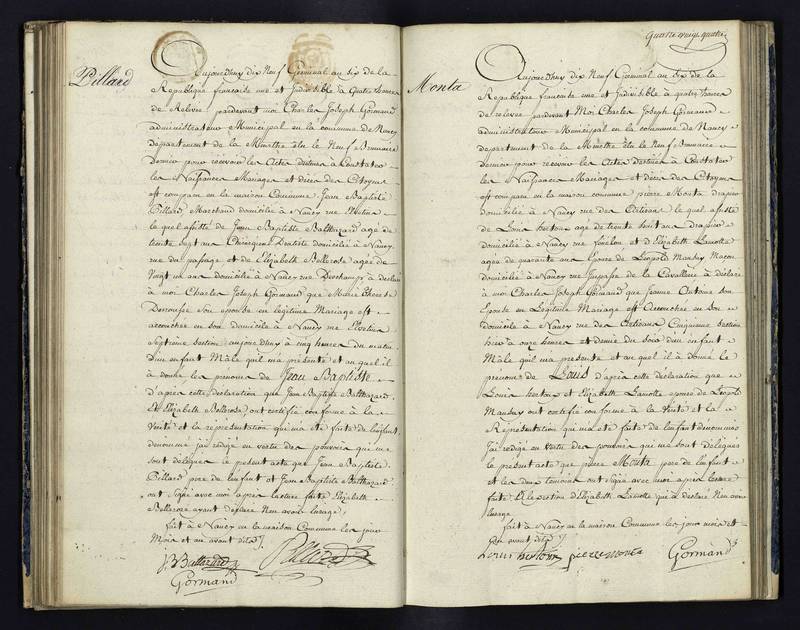 Pillard
Aujourdhuy dix Neuf Germinal an six de la
Republique francaise une et Indivisible à Quatre heures
de Relevée pardevant moi Charles Joseph Gormand
administrateur Municipal en la commune de Nancy
département de la Meurthe élu le Neuf Brumaire
Dernier pour recevoir les Actes destinés à Constater
les Naissances Mariages et décès des Citoyens
est comparu en la maison Commune Jean Baptiste
Pillard Marchand domicilié à Nancy rue
le quel assisté de Jean Baptiste Balthazard agé de
trente sept ans Chirurgien Dentiste domicilié à Nancy
rue du passage et de Elizabeth Bellerose agée de
Vingt un ans domicilié à Nancy rue à déclaré
à moi Charles Joseph Gormand que Marie Therese
son épouse en légitime Mariage est
accouchée en son domicile à Nancy rue
Septieme section aujourdhuy à cinq heures du matin
D'un enfant Mâle qu'il m'a présenté et au quel il
à donné les prénoms de Jean Baptiste
d'après cette déclaration que Jean Baptiste Balthazard
Et Elizabeth Bellerose ont certifié conforme à la
Verité et la représentation qui m'a été faite de l'enfant
denommé j'ai rédigé en vertu des pouvoirs qui me
sont délégués le présent acte que Jean Baptiste
Pillard pere de l'enfant et Jean Baptiste Balthazard
ont signé avec moi après lecture faite Elizabeth
Bellerose ayant déclaré n'en avoir l'usage
fait à Nancy en la maison Commune les jour
Mois et an avant dits
J. B. Baltazard Pillard
Gormand
Quatre vingt quatre
Monta
Aujourdhuy dix Neuf Germinal an six de la
Republique francaise une et Indivisible à quatre heures
de relevée pardevant Moi Charles Joseph Gormand
administrateur Municipal en la commune de Nancy
département de la Meurthe élu le Neuf Brumaire
Dernier pour recevoir les Actes destinés à Constater
les Naissances Mariages et décès des Citoyens
est comparu en la maison commune pierre Monta drapier
domicilié à Nancy rue des Artisans le quel assisté
de Louis hertou agé de trente huit ans drapier
domicilié à Nancy rue foulon et d'Elizabeth Lanotte
agée de quarante ans Epouse de Léopold Maubuy Maçon
domicilié à Nancy rue Impasse de la Cavallerie à déclaré
à moi Charles Joseph Gormand que jeanne Antoine son
Epouse en Légitime Mariage est Accouchée en son
domicile à Nancy rue des Artisans Cinquieme section
hier à onze heures et demie du soir d'un enfant
Mâle qu'il m'a présenté et au quel il à donné le
prénom de Louis d'après cette déclaration que
Louis hertou et Elizabeth Lanotte epouse de Léopold
Maubuy ont certifié conforme à la Verité et la
Représentation qui m'a été faite de l'enfant denommé
J'ai rédigé en vertu des pouvoirs qui me sont délégués
le présent acte que pierre Monta pere de l'enfant
et les deux témoins ont signé avec moi après lecture
faite Elizabeth Lanotte qui à déclaré n'en avoir
lusage
fait à Nancy en la maison Commune les jour mois et
an avant dits
Louis hertou pierre monta Gormand